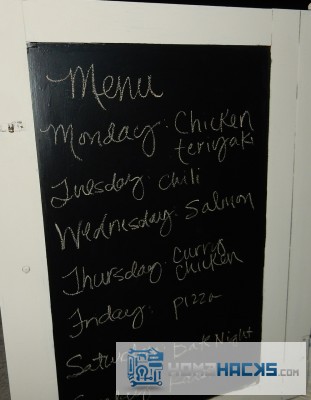 Menu
Monday: Chicken
teriyaki
Tuesday: Chili
Wednesday: Salmon
Thursday: Curry
Chicken
Friday: pizza
Night
HOMEHACKS.COM